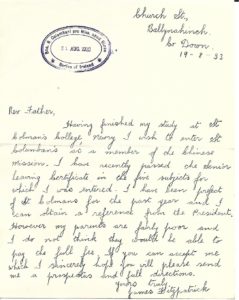 Church St,
Ballynahinch.
Co Down
19-8-33
Rev Father,
Having finished my study at St
Colman's College Newry I wish to enter St
Columban's as a member of the Chinese
mission. I have recently passed the senior
leaving Certificate in the five subjects for
which I was entered. I have been prefect
of St Colmans for the past year and I
can obtain a reference from the President.
However my parents are fairly poor and
I do not think they would be able to
pay the full fee. If you can accept me
which I sincerely hope you will please send
me a prospectus and full directions.
Yours truly
James Fitzpatrick